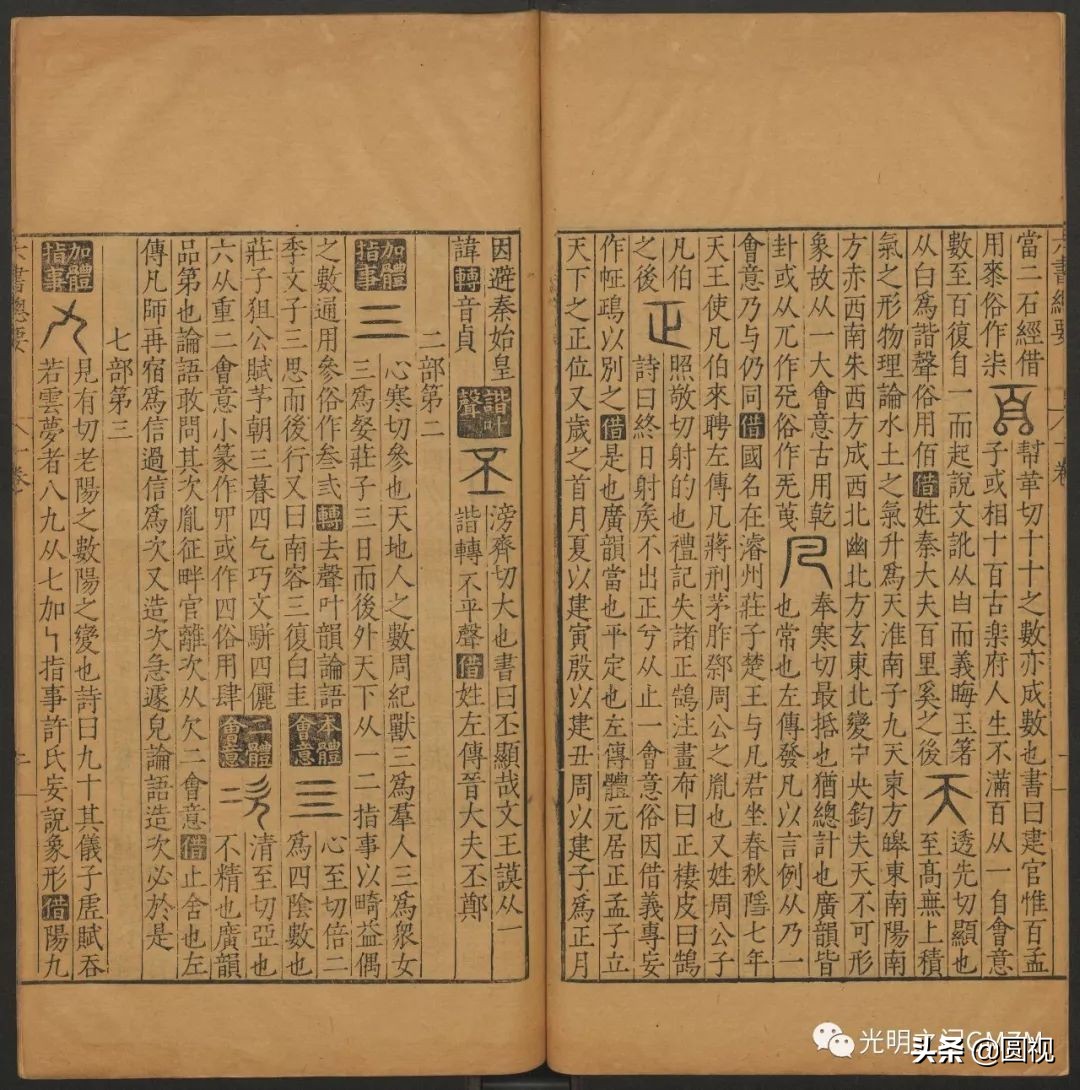 當二石經借
用桼俗作柒
百
幇革切十十之數亦成數也書曰建官惟百孟
子或相十百古樂府人生不滿百从一自會意
數至百復自一而起說文訛从白而義晦玉箸
从白爲諧聲俗用佰借姓秦大夫百里奚之後
天
透先切顯也
至高無上積
氣之形物理論水土之氣升爲天淮南子九天東方皞東南陽南
方赤西南朱西方成西北幽北方玄東北變中央鈞夫天不可形
象故从一大會意古用乾
卦或从兀作兂俗作旡䒶
凡
奉寒切最抵也猶總計也廣韻皆
也常也左傳發凡以言例从乃一
會意乃与仍同借國名在濬州莊子楚王与凡君坐春秋隱七年
天王使凡伯來聘左傳凡蔣刑茅胙鄒周公之胤也又姓周公子
凡伯
之後
正
照敬切射的也禮記失諸正鵠注畫布曰正棲皮曰鵠
詩曰終日射矦不出正兮从止一會意俗因借義專妄
作怔鴊以別之借是也廣韻當也平定也左傳體元居正孟子立
天下之正位又歲之首月夏以建寅殷以建丑周以建子爲正月
因避秦始皇
諱轉音貞
諧叶聲
丕
滂齊切大也書曰丕顯哉文王謨从一
諧轉不平聲借姓左傳晉大夫丕鄭
二部第二
加體指事
三
心寒切參也天地人之數周紀獸三爲羣人三爲衆女
三爲姦莊子三日而後外天下从一二指事以畸益偶
之數通用參俗作叁弎轉去聲叶韻論語
季文子三思而後行又曰南容三復白圭
本體會意
亖
心至切倍二
爲四陰數也
莊子狙公賦芧朝三暮四乞巧文駢四儷
六从重二會意小篆作𦉭或作四俗用肆
二體會意
次
清至切亞也
不精也廣韻
品第也論語敢問其次胤征畔官離次从欠二會意借止舍也左
傳凡師再宿爲信過信爲次又造次急遽皃論語造次必於是
七部第三
加體指事
九
見有切老陽之數陽之變也詩曰九十其儀子虛賦吞
若雲夢者八九从七加乀指事許氏妄說象形借陽九
六書總要
光明之门GMZM
头条 @圆视